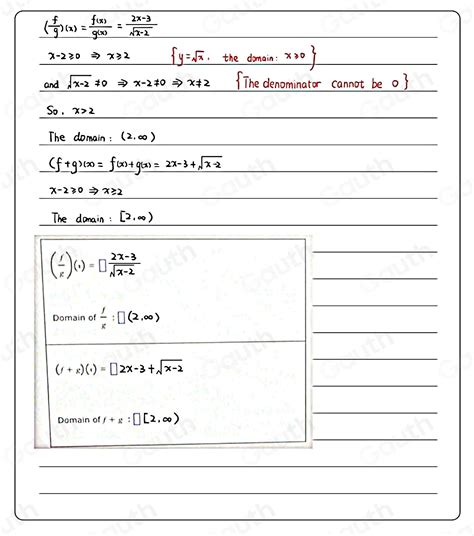 (f/g)(x) = f(x)/g(x) = 2x-3/√x-2
x-2≥0 ⇒ x≥2 {y=√x, the domain: x≥0}
and √x-2 ≠0 ⇒ x-2≠0 ⇒ x≠2 {The denominator cannot be 0}
So, x>2
The domain: (2,∞)
(f+g)(x) = f(x)+g(x) = 2x-3+√x-2
x-2≥0 ⇒ x≥2
The domain: [2,∞)
(f/g)(x) = □ 2x-3/√x-2
Domain of f/g : □ (2,∞)
(f+g)(x) = □ 2x-3+√x-2
Domain of f+g : □ [2,∞)
Gauth